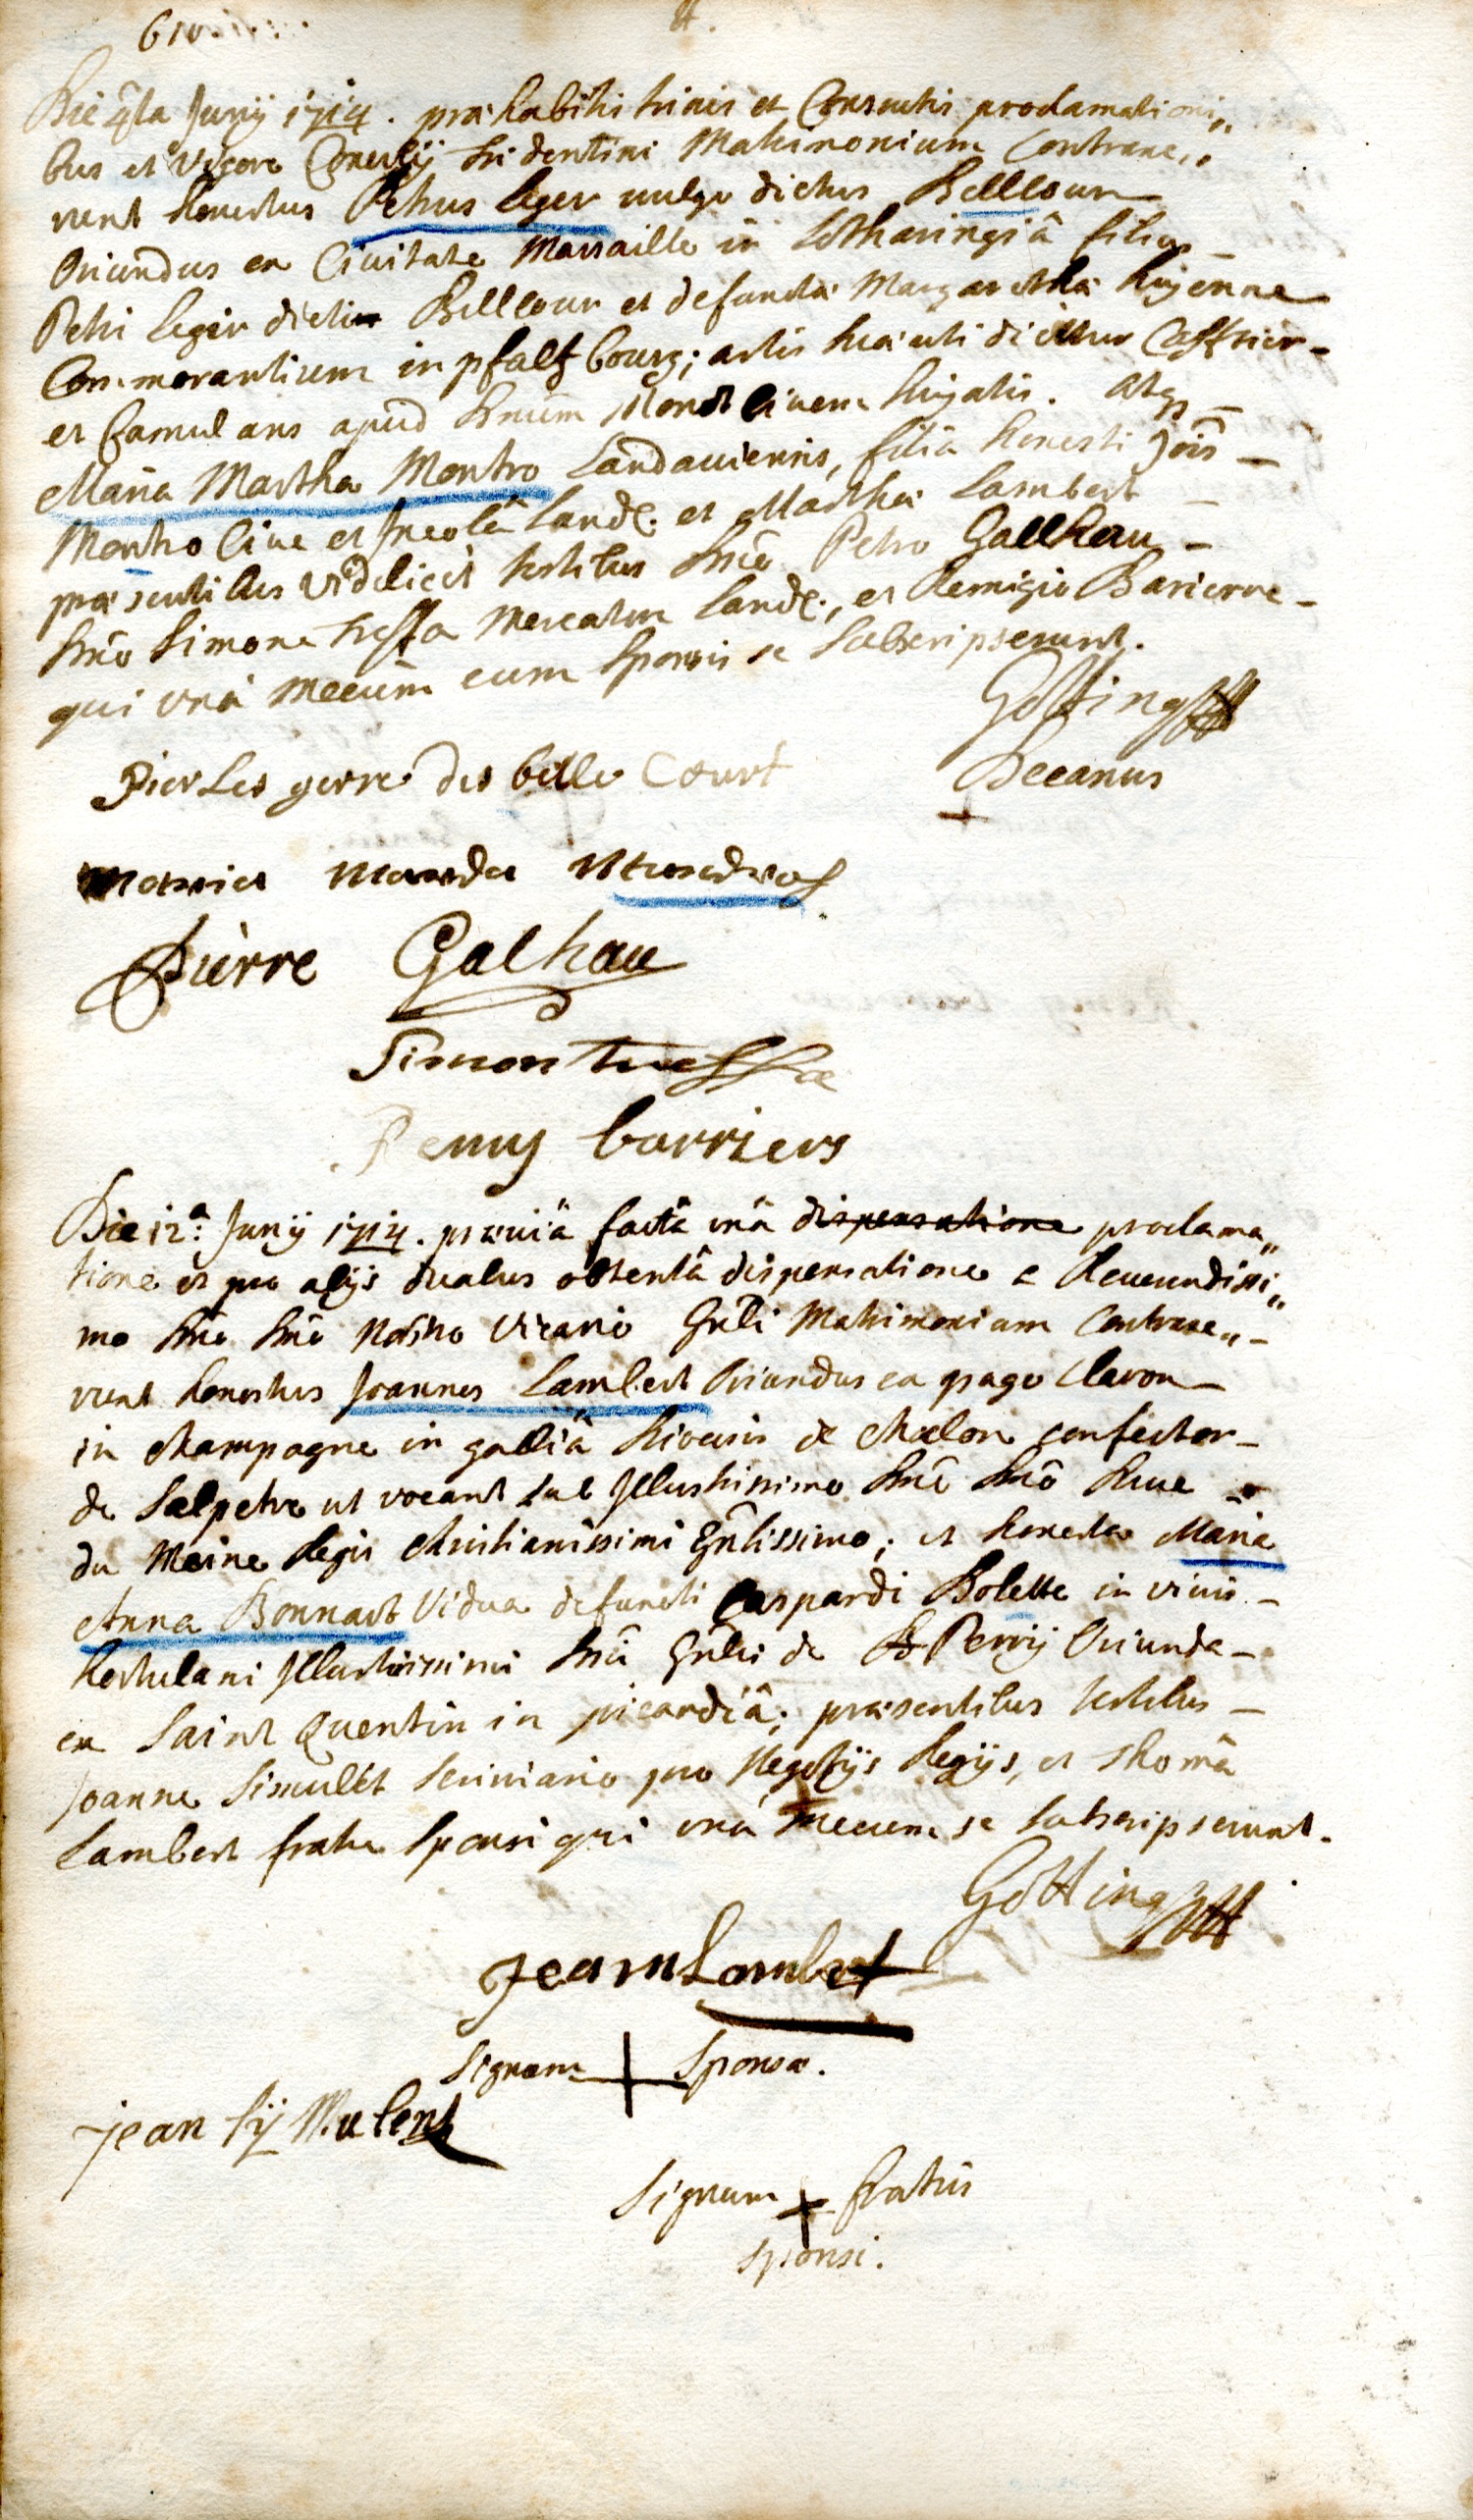 610.
Die 4ta Junÿ 1714. præhabitis trinis et Consuetis proclamationi„
bus et vigore Concilÿ tridentini Matrimonium Contraxe„
runt honestus Petrus leger vulgo dictus Bellcour
Oriundus ex Civitate Marsaille in Lotharingiâ filius
Petri leger dicti Bellcour et defunctæ Margarethæ
Commorantium in pfaltzbourg; artis suæ uti dicitur
et famulans apud Dnum civem hujatis. Atq
Maria Martha Montro Landauiensis, filia honesti Jois
Montro Cive et Incolâ Land: et Marthæ Lambert
præsentibus videlicet testibus Dno Petro Gallhau
Dno Simone tressa Mercatore Land:, et Remigio Barierre
qui unà mecum cum Sponsis se Subscripserunt.
Götting
Decanus
Pier Les gerre des belle Court
maria marda
Pierre Galhau
Simon tressa
Remy barriers
Die 12a: Junÿ 1714. præviâ factâ unâ dispensatione proclama„
tione et pro alÿs duabus obtentâ dispensatione a Reuerendissi„
mo Dno Dno Nostro Vicario Gnli Matrimonium Contraxe„
runt honestus Joannes Lambert Oriundus ex pago Clavon
in Champagne in galliâ Diocesis de Chalon confector
de Salpetre ut vocant sub Illustrissimo Dno Dno Duce
du Maine Regis Christianissimi Gnlissimo; et honesta Maria
Anna Bonnart Vidua defuncti Caspardi Bolette in vivis
hortulani Illustrissimi Dni Gnlis de Perrÿ Oriunda
ex Saint Quentin in picardiâ; præsentibus testibus
Joanne Simulét Scriniario pro Negotÿs Regÿs, et Thomâ
Lambert fratre Sponsi qui unà mecum se Subscripserunt.
Götting
Jean Lambert
Signum + Sponsæ.
jean Sÿ Mulent
Signum + fratris
Sponsi.